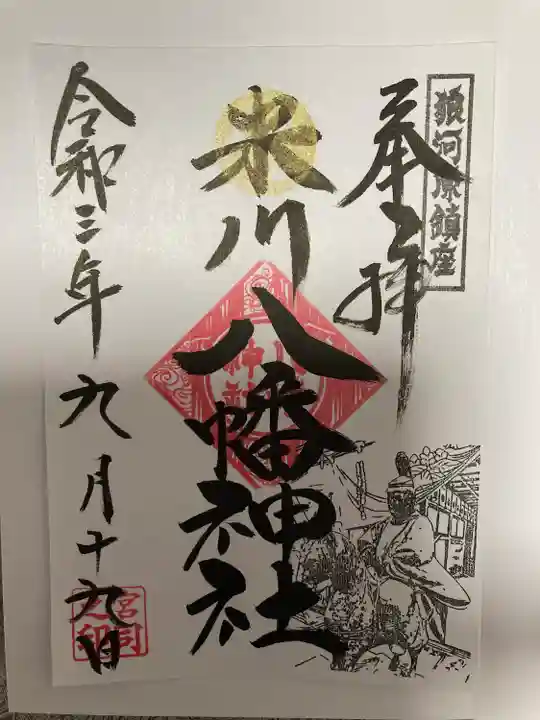 狼河原鎮座
奉拝
米川八幡神社
令和三年九月十九日
宮司之印